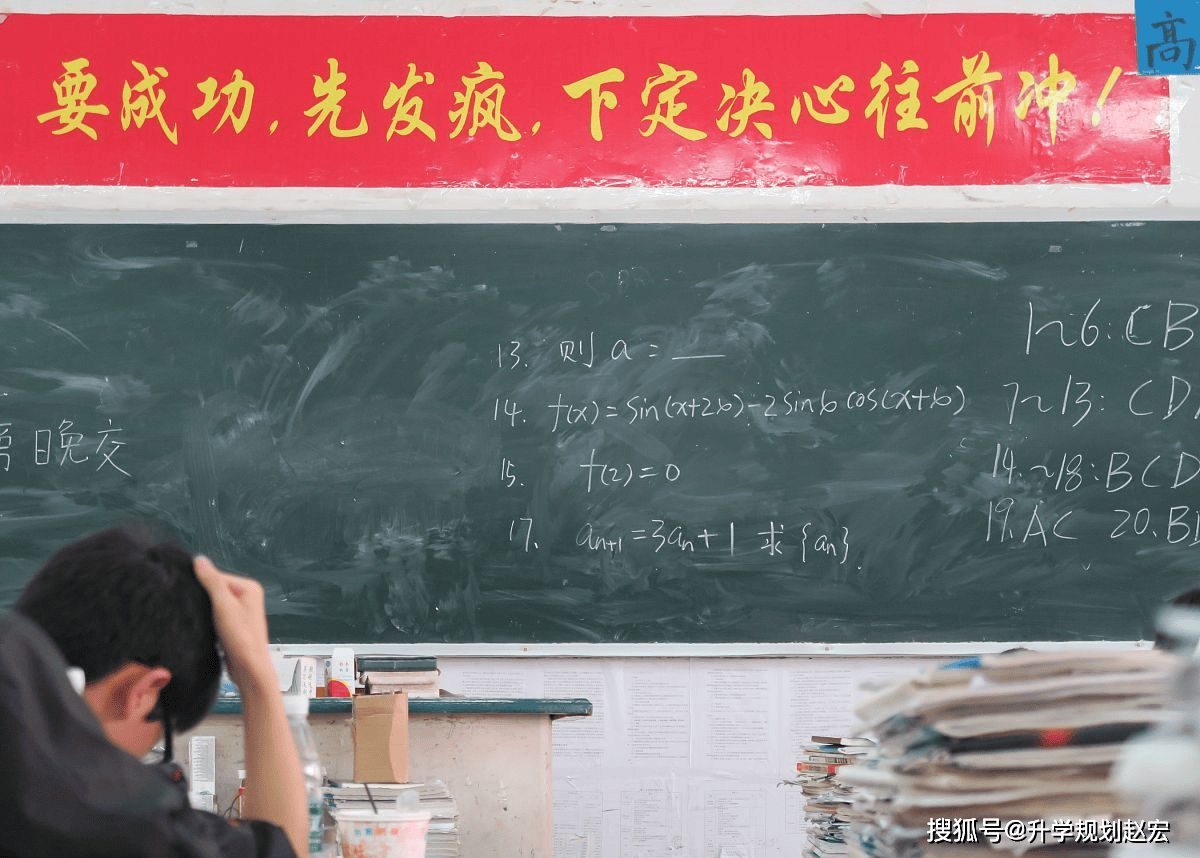 高
要成功,先发疯,下定决心往前冲!
13. 则 a = ___
14. f(x) = sin(x+2b)-2sinb cos(x+b)
15. f(2)=0
17. aₙ₊₁=3aₙ+1 求{aₙ}.
日晚交
1~6: CB
7~13: CD
14.~18: BCD
19. AC 20. B
搜狐号@升学规划赵宏